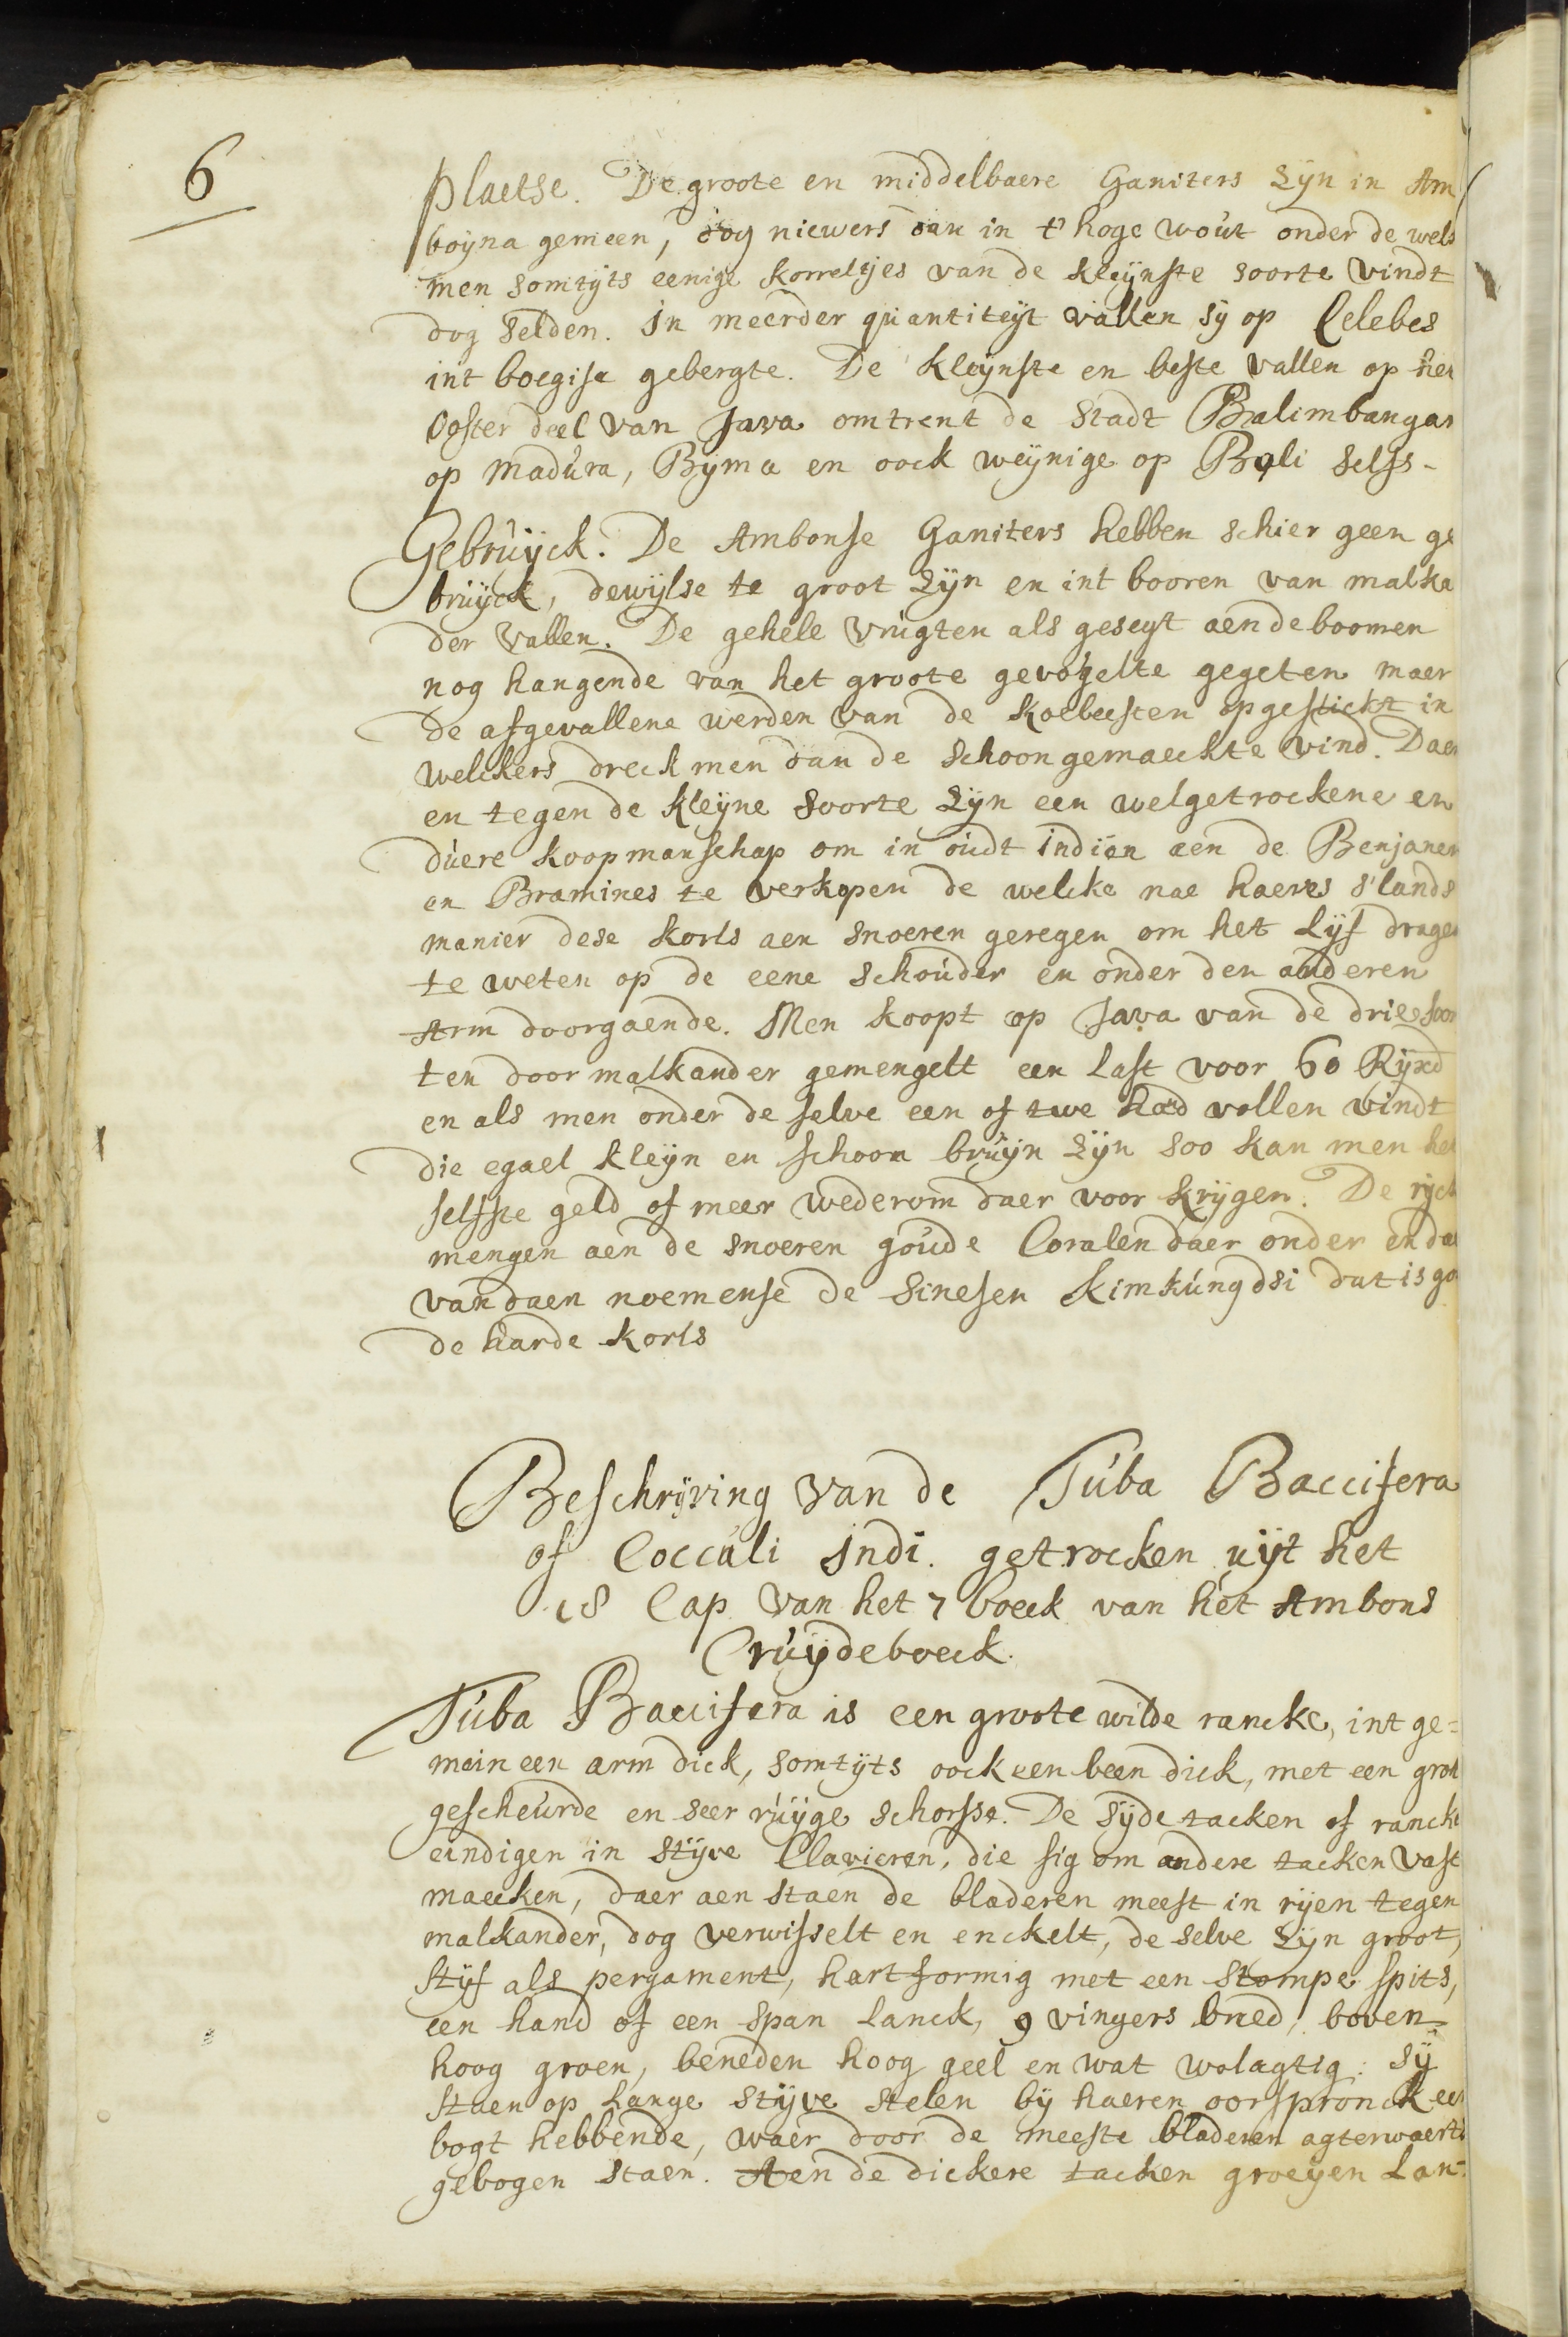 6
Plaetse. De groote en middelbaere Ganiters zÿn in Am
boÿna gemeen, dog niewers dan in t' hoge wout onder de wels
men somtÿts eenige korreltjes van de kleÿnste soorte vindt
dog selden. In meerder quantiteÿt vallen sÿ op Celebes
int boegise gebergte. De kleÿnste en beste vallen op het
Ooster deel van Java omtrent de Stadt Balimbangan
op Madura, Bÿma en oock weÿnige op Bali selfs-
Gebruÿck. De Ambonse Ganiters hebben schier geen ge
bruÿck, dewÿlse te groot zÿn en int booren van malka
der vallen. De gehele vrugten als geseyt aen de boomen
nog hangende van het groote gevogelte gegeten maer
de afgevallene werden van de koebeesten opgeslickt in
welckers dreck men dan de schoon gemaeckte vind. Daer
en tegen de kleÿne soorte zÿn een welgetrockene en
duere koopmanschap om in oudt indiën aen de Benjanen
en Bramines te verkopen de welcke nae haeres s'lands
manier dese korls aen snoeren geregen om het Lÿf dragen
te weten op de eene schouder en onder den anderen
Arm doorgaende. Men koopt op Java van de drie soor
ten door malkander gemengelt een last voor 60 Rÿxd
en als men onder de selve een of twe had vollen vindt
die egael kleÿn en schoon bruÿn zÿn soo kan men het
selfste geld of meer wederom daer voor krÿgen. De rÿck
mengen aen de snoeren goude Coralen daer onder en dae
van daen noemense de Sinesen Kimkungdsi dat is go
de harde korls
Beschrÿving van de Tuba Baccifera
of Cocculi Indi. getrocken uÿt het
18 Cap van het 7 boeck van het Ambons
Cruÿdeboeck.
Tuba Baccifera is een groote wilde rancke, int ge=
mein een arm dick, somtÿts oock een been dick, met een grof
gescheurde en seer ruÿge schorsse. De sÿde tacken of rancke
eindigen in stÿve Clavieren, die sig om andere tacken vast
maecken, daer aen staen de bladeren meest in rÿen tegen
malkander, dog verwisselt en enckelt, de selve zÿn groot,
stÿf als pergament, hartformig met een stompe spits,
een hand of een span lanck, 9 vingers breed, boven
hoog groen, beneden hoog geel en wat wolagtig: sÿ
staen op lange stÿve stelen bÿ haeren oorspronck een
bogt hebbende, waer door de meeste bladeren agterwaerts
gebogen staen. Aen de dickere tacken groeÿen Lan-